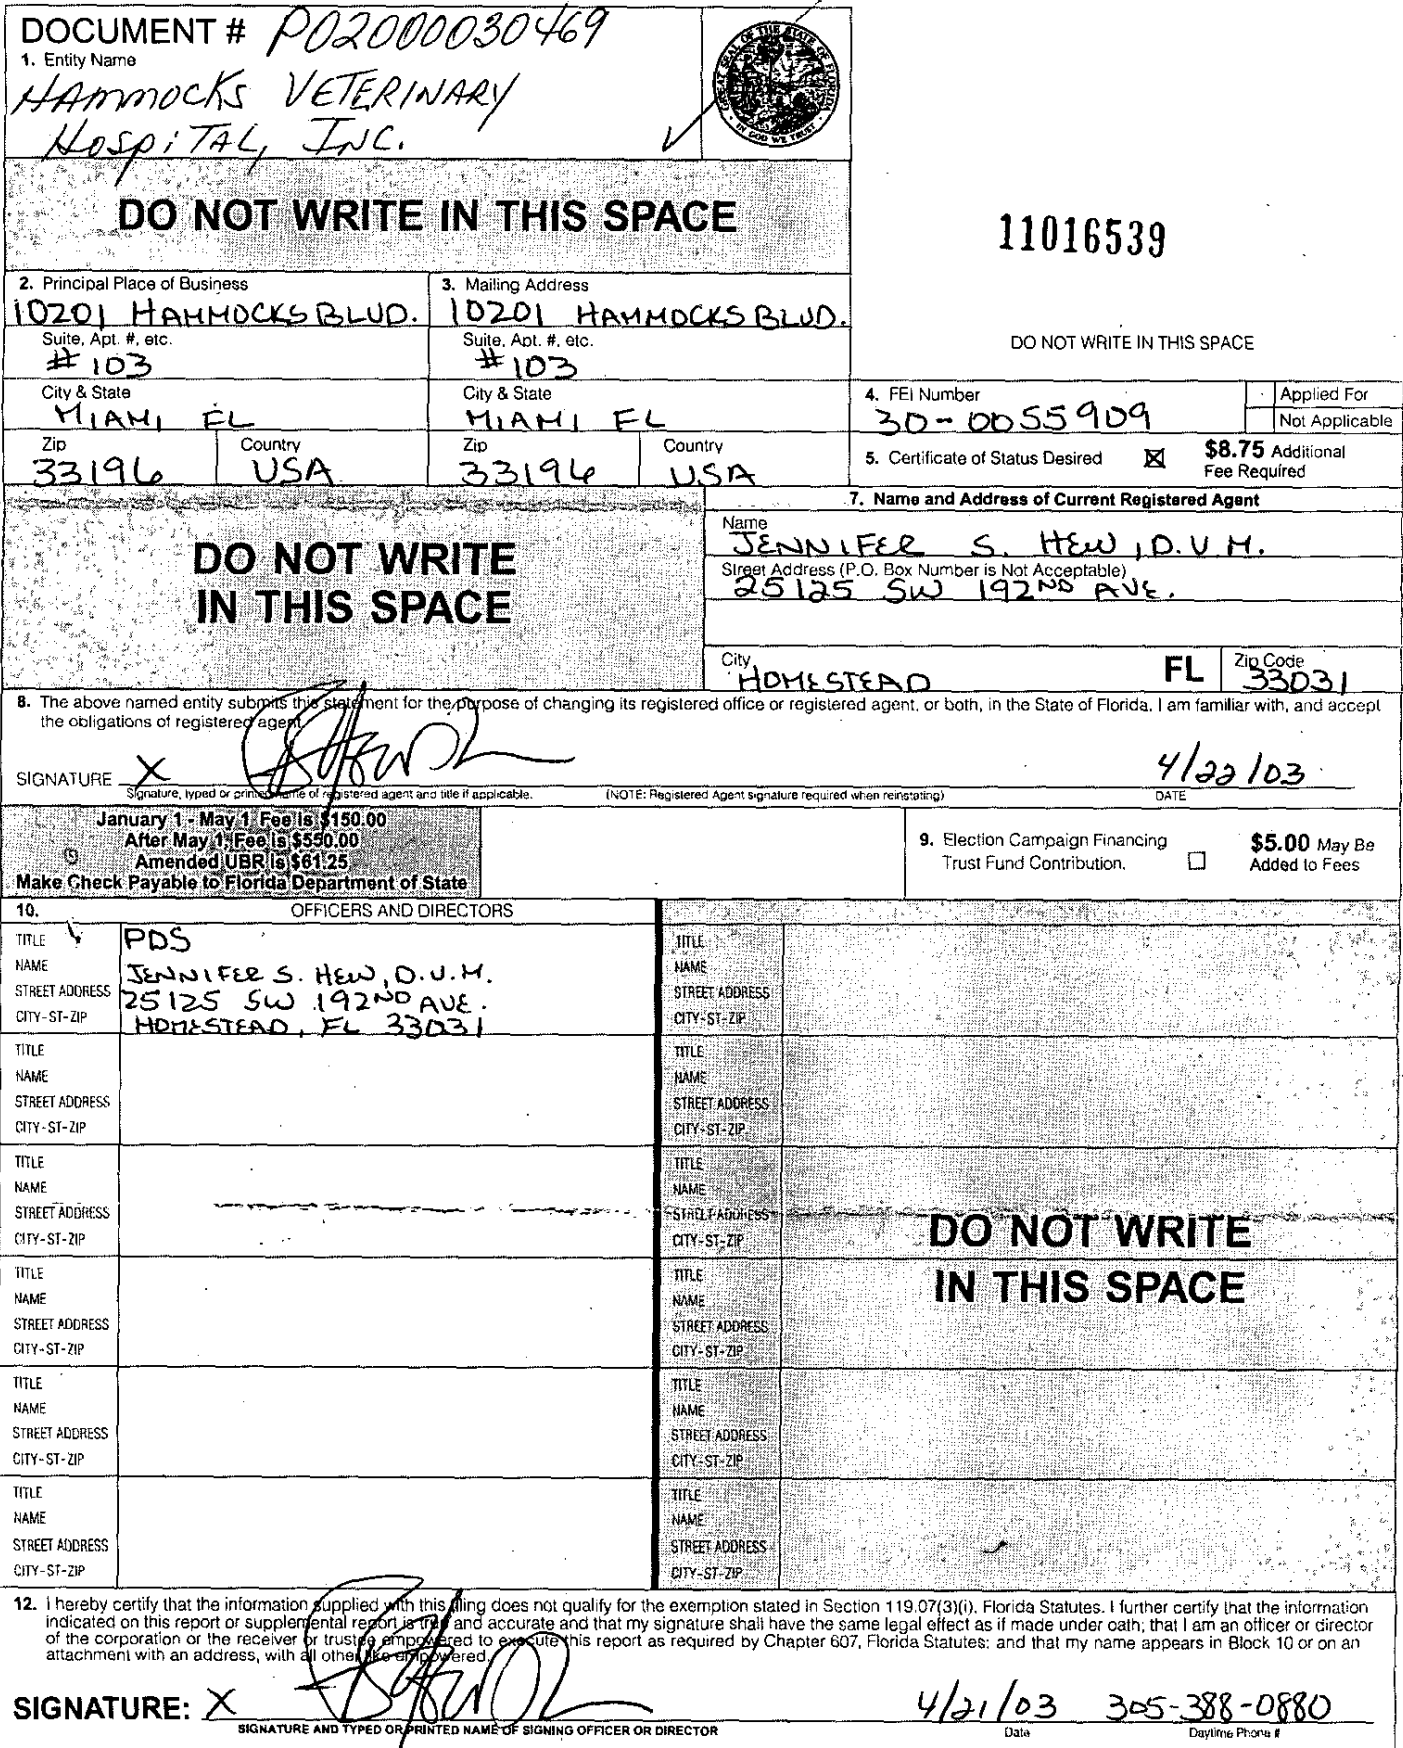 DOCUMENT # P02000030469
1. Entity Name
HAMMOCKS VETERINARY
HOSPITAL, INC.
GREAT SEAL OF THE STATE OF FLORIDA
IN GOD WE TRUST
DO NOT WRITE IN THIS SPACE
11016539
2. Principal Place of Business
10201 HAMMOCKS BLVD.
3. Mailing Address
10201 HAMMOCKS BLVD.
Suite, Apt. #, etc.
# 103
Suite, Apt. #, etc.
# 103
DO NOT WRITE IN THIS SPACE
City & State
MIAMI FL
City & State
MIAMI FL
4. FEI Number
30-0055909
Applied For
Not Applicable
Zip
33196
Country
USA
Zip
33196
Country
USA
5. Certificate of Status Desired ☒ $8.75 Additional
Fee Required
DO NOT WRITE
IN THIS SPACE
7. Name and Address of Current Registered Agent
Name
JENNIFER S. HEW, D.V.M.
Street Address (P.O. Box Number is Not Acceptable)
25125 SW 192ND AVE.
City
HOMESTEAD
FL
Zip Code
33031
8. The above named entity submits this statement for the purpose of changing its registered office or registered agent, or both, in the State of Florida. I am familiar with, and accept
the obligations of registered agent.
SIGNATURE X
4/22/03
Signature, typed or printed name of registered agent and title if applicable.
(NOTE: Registered Agent signature required when reinstating)
DATE
January 1 - May 1 Fee is $150.00
After May 1, Fee is $550.00
Amended UBR is $61.25
Make Check Payable to Florida Department of State
9. Election Campaign Financing
Trust Fund Contribution. ☐
$5.00 May Be
Added to Fees
10. OFFICERS AND DIRECTORS
TITLE PDS
NAME JENNIFER S. HEW, D.V.M.
STREET ADDRESS 25125 SW 192ND AVE.
CITY-ST-ZIP HOMESTEAD, FL 33031
TITLE
NAME
STREET ADDRESS
CITY-ST-ZIP
TITLE
NAME
STREET ADDRESS
CITY-ST-ZIP
TITLE
NAME
STREET ADDRESS
CITY-ST-ZIP
TITLE
NAME
STREET ADDRESS
CITY-ST-ZIP
TITLE
NAME
STREET ADDRESS
CITY-ST-ZIP
TITLE
NAME
STREET ADDRESS
CITY-ST-ZIP
TITLE
NAME
STREET ADDRESS
CITY-ST-ZIP
TITLE
NAME
STREET ADDRESS
CITY-ST-ZIP
TITLE
NAME
STREET ADDRESS
CITY-ST-ZIP
TITLE
NAME
STREET ADDRESS
CITY-ST-ZIP
TITLE
NAME
STREET ADDRESS
CITY-ST-ZIP
DO NOT WRITE
IN THIS SPACE
12. I hereby certify that the information supplied with this filing does not qualify for the exemption stated in Section 119.07(3)(i), Florida Statutes. I further certify that the information
indicated on this report or supplemental report is true and accurate and that my signature shall have the same legal effect as if made under oath; that I am an officer or director
of the corporation or the receiver or trustee empowered to execute this report as required by Chapter 607, Florida Statutes; and that my name appears in Block 10 or on an
attachment with an address, with all other like empowered.
SIGNATURE: X
4/21/03 305-388-0880
SIGNATURE AND TYPED OR PRINTED NAME OF SIGNING OFFICER OR DIRECTOR
Date
Daytime Phone #